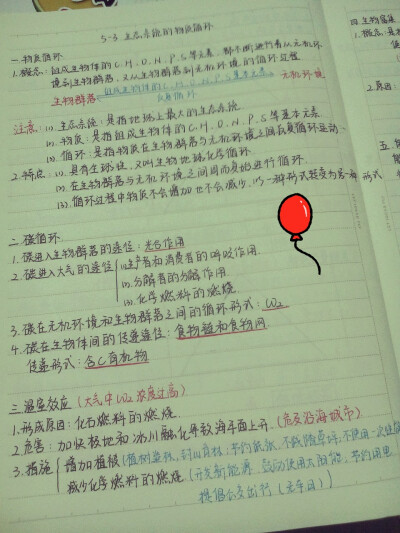 5-3 生态系统的物质循环
一. 物质循环
1. 概念: 组成生物体的C.H.O.N.P.S等元素, 都不断进行着从无机环
境到生物群落, 又从生物群落到无机环境的循环过程
生物群落 组成生物体的C.H.O.N.P.S基本元素 无机环境
反复循环
注意: (1). 生态系统: 是指地球上最大的生态系统
(2). 物质: 是指组成生物体的C.H.O.N.P.S等基本元素
(3). 循环: 是指物质在生物群落与无机环境之间反复循环运动.
2. 特点: (1). 具有全球性, 又叫生物地球化学循环
(2). 在生物群落与无机环境之间周而复始进行循环.
(3). 循环过程中物质不会增加也不会减少, 以一种形式转变为另一种形式
二. 碳循环
1. 碳进入生物群落的途径: 光合作用
2. 碳进入大气的途径 (1). 生产者和消费者的呼吸作用
(2). 分解者的分解作用
(3). 化学燃料的燃烧
3. 碳在无机环境和生物群落之间的循环形式: CO2
4. 碳在生物体间的传递途径: 食物链和食物网
传递形式: 含C有机物
三. 温室效应 (大气中CO2浓度过高)
1. 形成原因: 化石燃料的燃烧.
2. 危害: 加快极地和冰川融化导致海平面上升. (危及沿海城市)
3. 措施 增加植被 (植树造林, 封山育林, 节约纸张, 不践踏草坪, 不使用一次性
减少化学燃料的燃烧 (开发新能源, 使用太阳能, 节约用电
提倡公交出行
四. 生物
1. 概念:
2. 原因:
五.